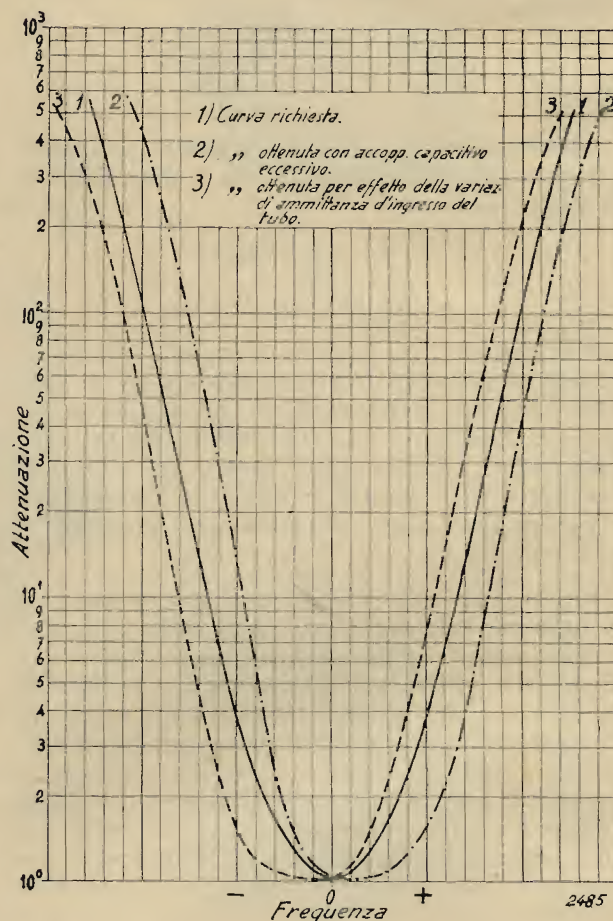 10³
9
8
7
6
5
4
3
2
10²
9
8
7
6
5
4
3
2
10¹
9
8
7
6
5
4
3
2
10⁰
Attenuazione
3 1 2
3 1 2
1) Curva richiesta.
2) ,, ottenuta con accopp. capacitivo
eccessivo.
3) ,, ottenuta per effetto della variaz.
di ammittanza d'ingresso del
tubo.
− 0 +
Frequenza
2485